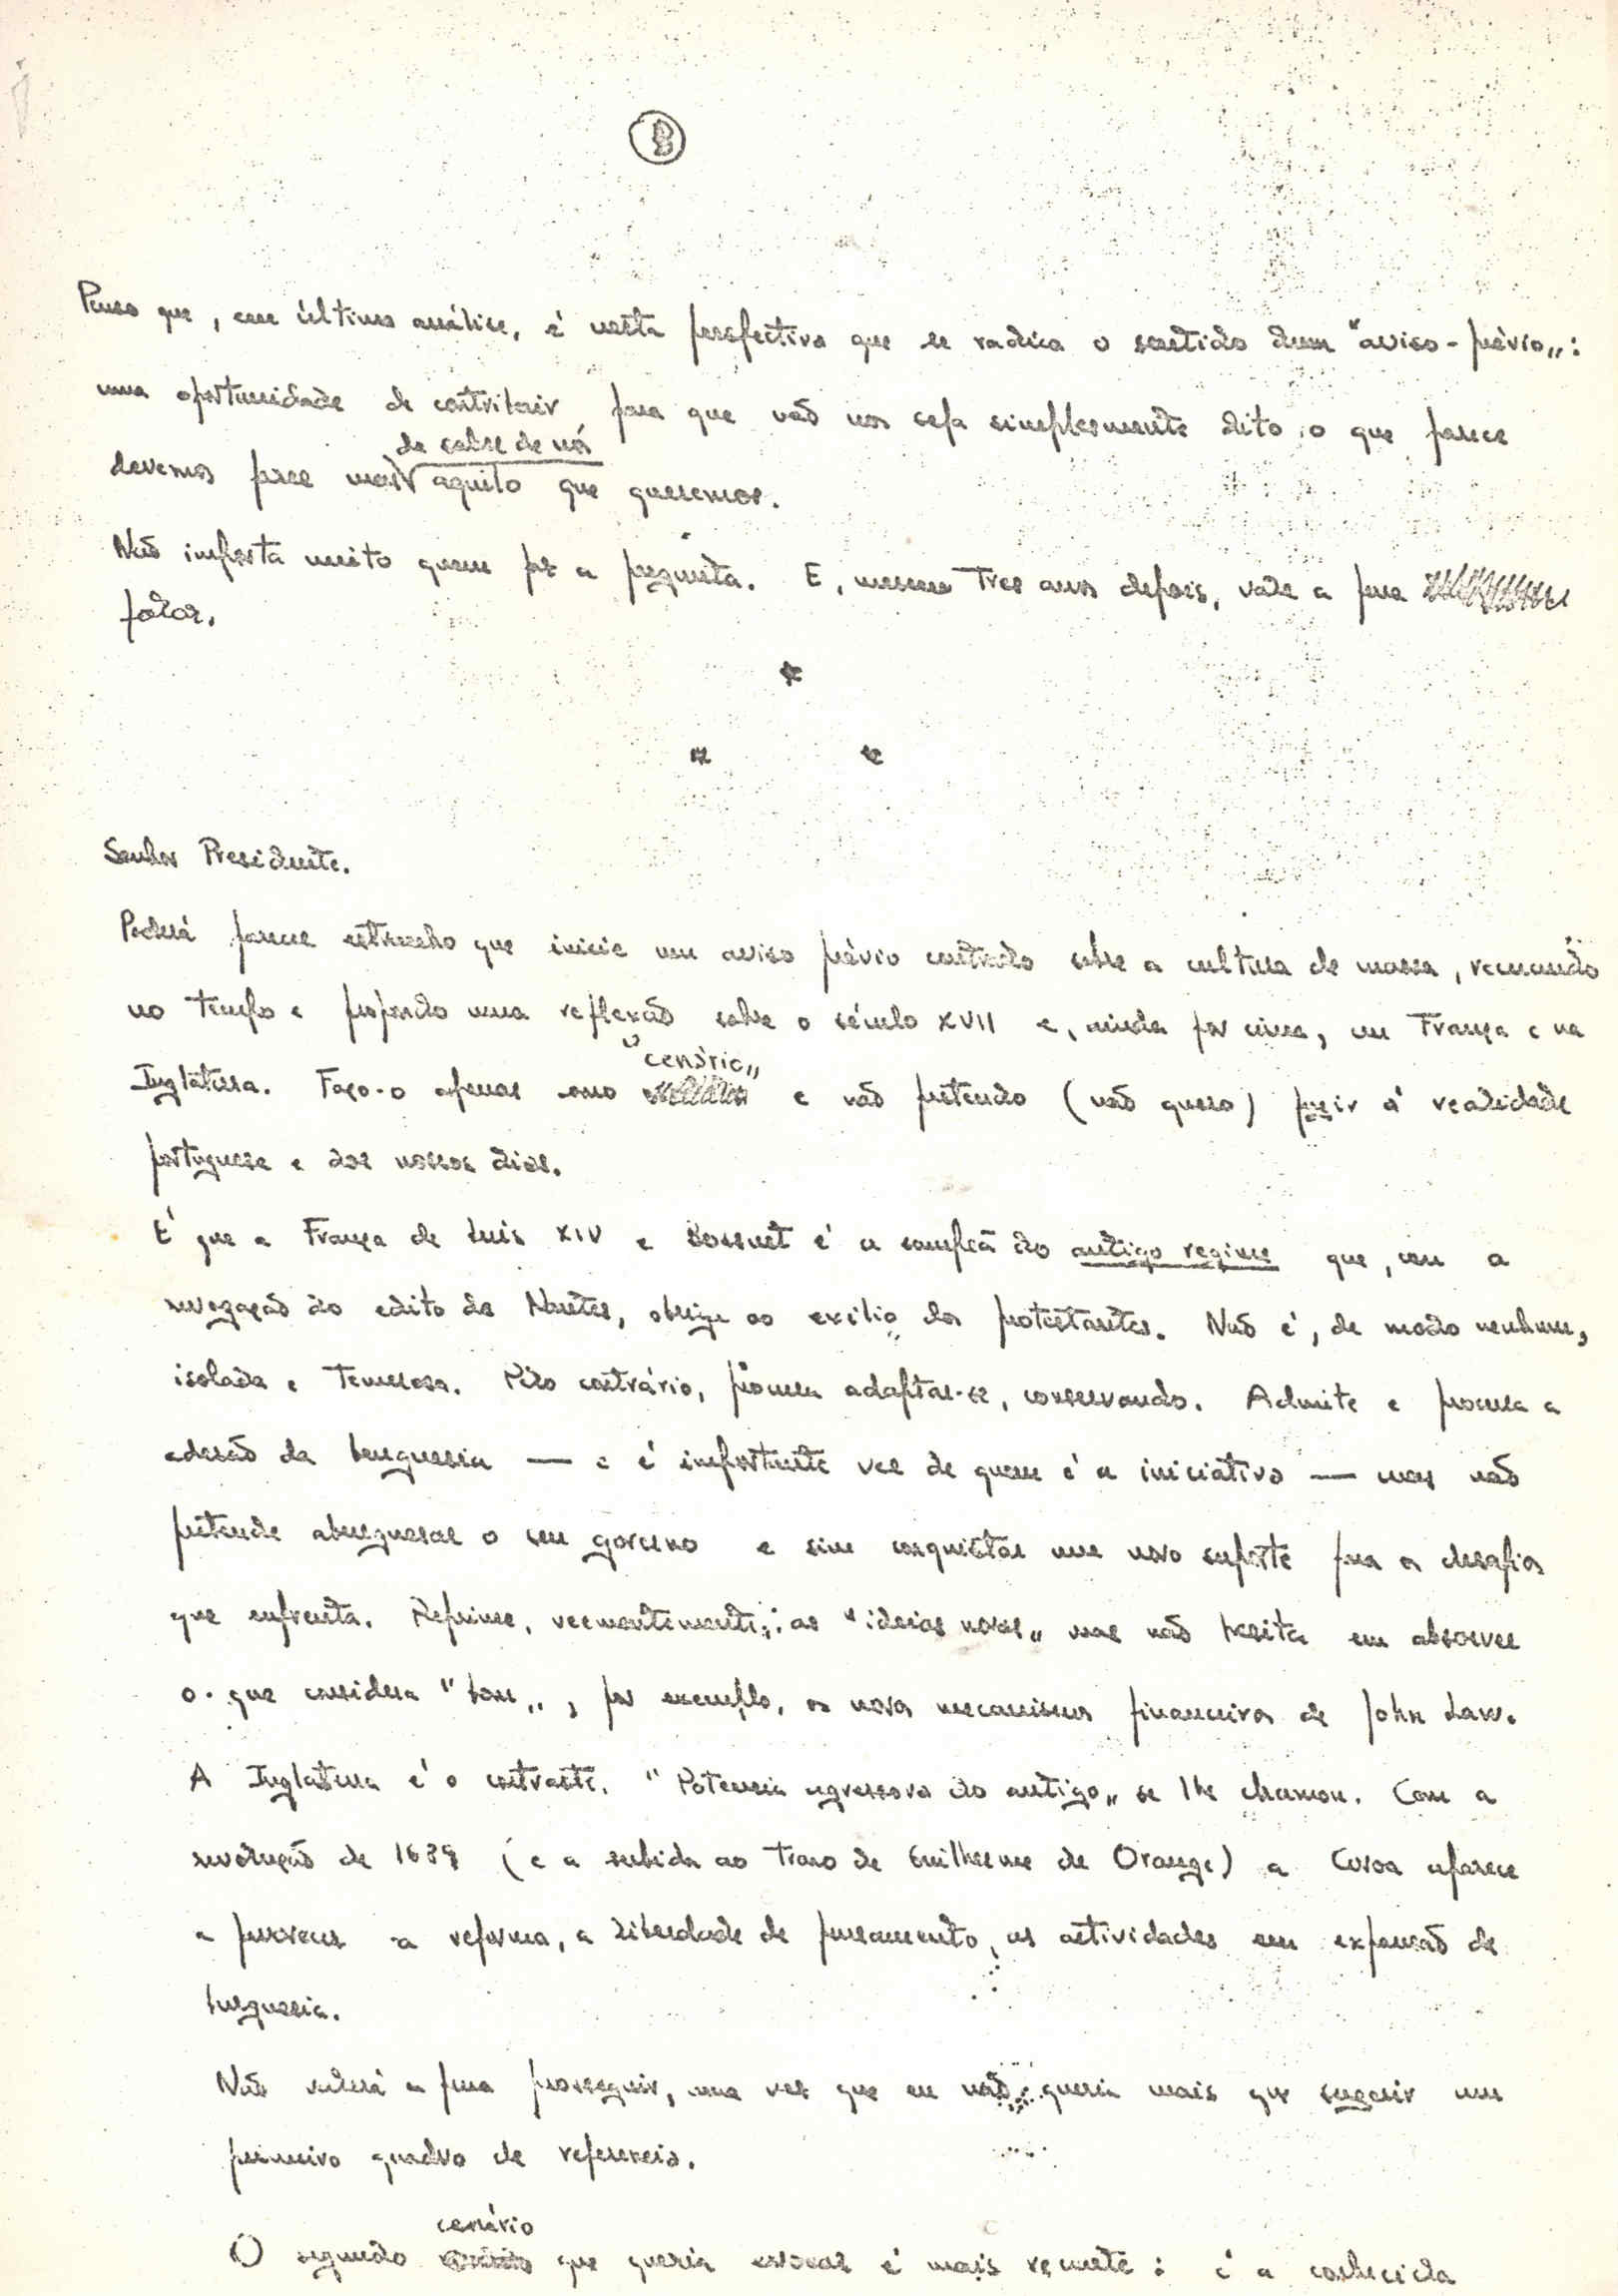 Penso que, em última análise, é nesta perspectiva que se radica o sentido dum "aviso-prévio":
uma oportunidade de contribuir para que não nos seja simplesmente dito o que parece
de sobre de nós
devemos fazer mas aquilo que queremos.
Não importa muito quem faz a pregunta. E, mesmo tres anos depois, vale a pena
falar.
*
* *
Senhor Presidente.
Poderá parecer estranho que inicie um aviso prévio centrado sobre a cultura de massa, recuando
no tempo e propondo uma reflexão sobre o século XVII e, ainda por cima, em França e na
"cenário"
Inglaterra. Faço-o apenas como e não pretendo (não quero) fugir á realidade
portuguesa e dos nossos dias.
É que a França de Luis XIV e Bossuet é a campeã do antigo regime que, com a
revogação do edito de Nantes, obriga ao exilio dos protestantes. Não é, de modo nenhum,
isolada e temerosa. Pelo contrário, procura adaptar-se, conservando. Admite e procura a
adesão da burguesia — e é importante ver de quem é a iniciativa — mas não
pretende aburguesar o seu governo e sim conquistar um novo suporte para os desafios
que enfrenta. Reprime, veementemente, as "ideias novas" mas não hesita em absorver
o que considera "bom", por exemplo, os novos mecanismos financeiros de John Law.
A Inglaterra é o contraste. "Potencia agressora do antigo" se lhe chamou. Com a
revolução de 1689 (e a subida ao trono de Guilherme de Orange) a Coroa aparece
a favorecer a reforma, a liberdade de pensamento, as actividades em expansão da
burguesia.
Não valerá a pena prosseguir, uma vez que eu não queria mais que sugerir um
primeiro quadro de referencia.
cenário
O segundo que queria evocar é mais recente: é a conhecida